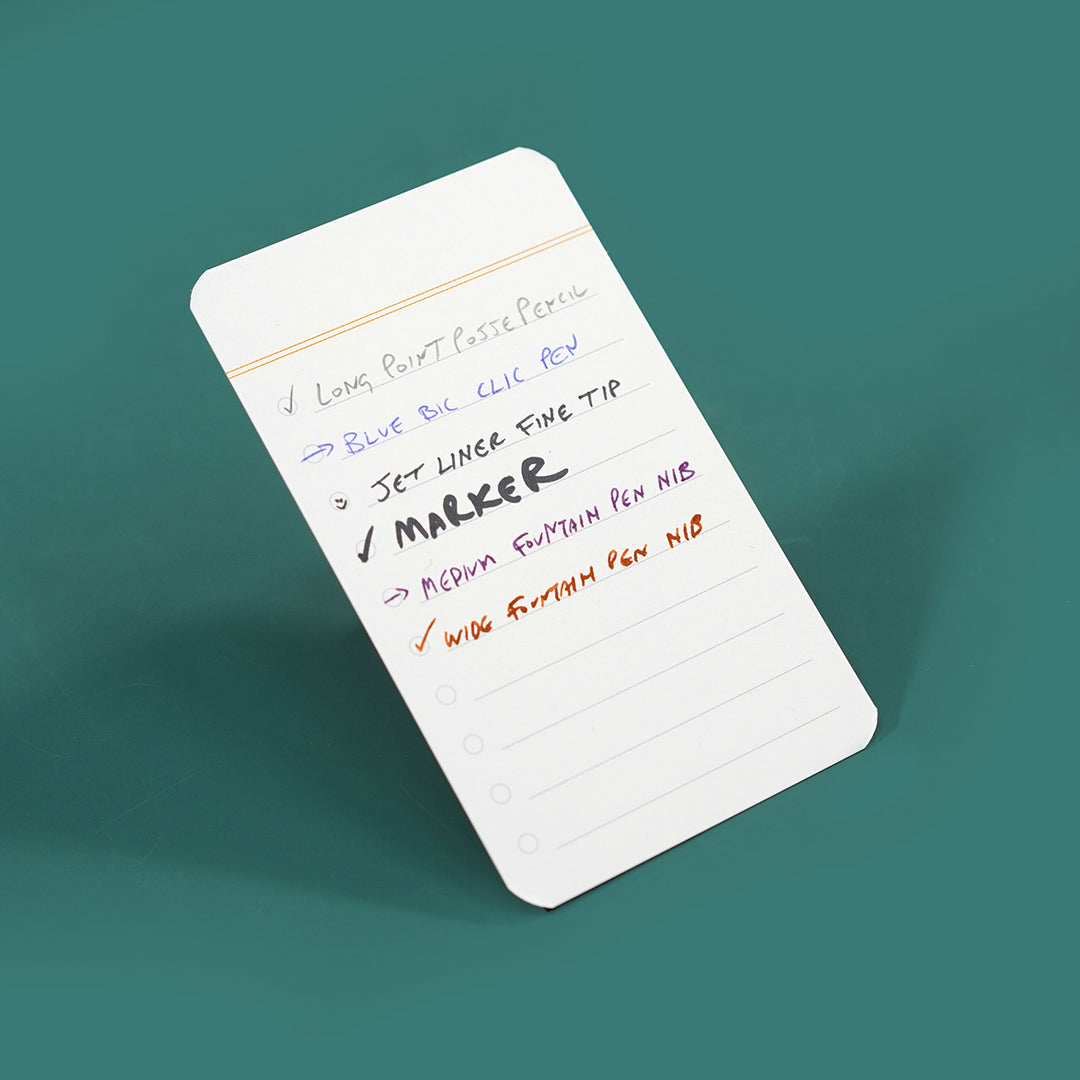 ✓ LONG POINT POSSE PENCIL
→ BLUE BIC CLIC PEN
JET LINER FINE TIP
✓ MARKER
→ MEDIUM FOUNTAIN PEN NIB
✓ WIDE FOUNTAIN PEN NIB